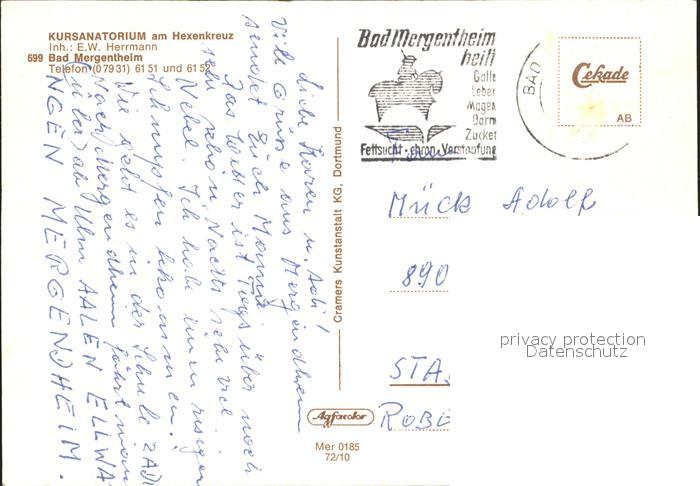 KURSANATORIUM am Hexenkreuz
Inh.: E.W. Herrmann
699 Bad Mergentheim
Telefon (0 79 31) 61 51 und 61 52
Liebe Karen u. Adi!
Viele Grüße aus Mergendheim
sendet Euch Mama
Das Wetter ist Tags über noch
sehr schön Nachts sehr viel
Nebel. Ich habe einen risigen
Schnupfen bekommen.
Wie geht es in der Schule
Nach Mergendheim fährt man
über ab Ulm AALEN ELLWA
NGEN MERGENDHEIM.
Cramers Kunstanstalt KG, Dortmund
Agfacolor
Mer 0185
72/10
Bad Mergentheim
heilt
Galle
Leber
Magen
Darm
Zucker
Fettsucht · chron. Verstopfung
BAD
Cekade
AB
Mück Adolf
890
STA
ROBE
privacy protection
Datenschutz